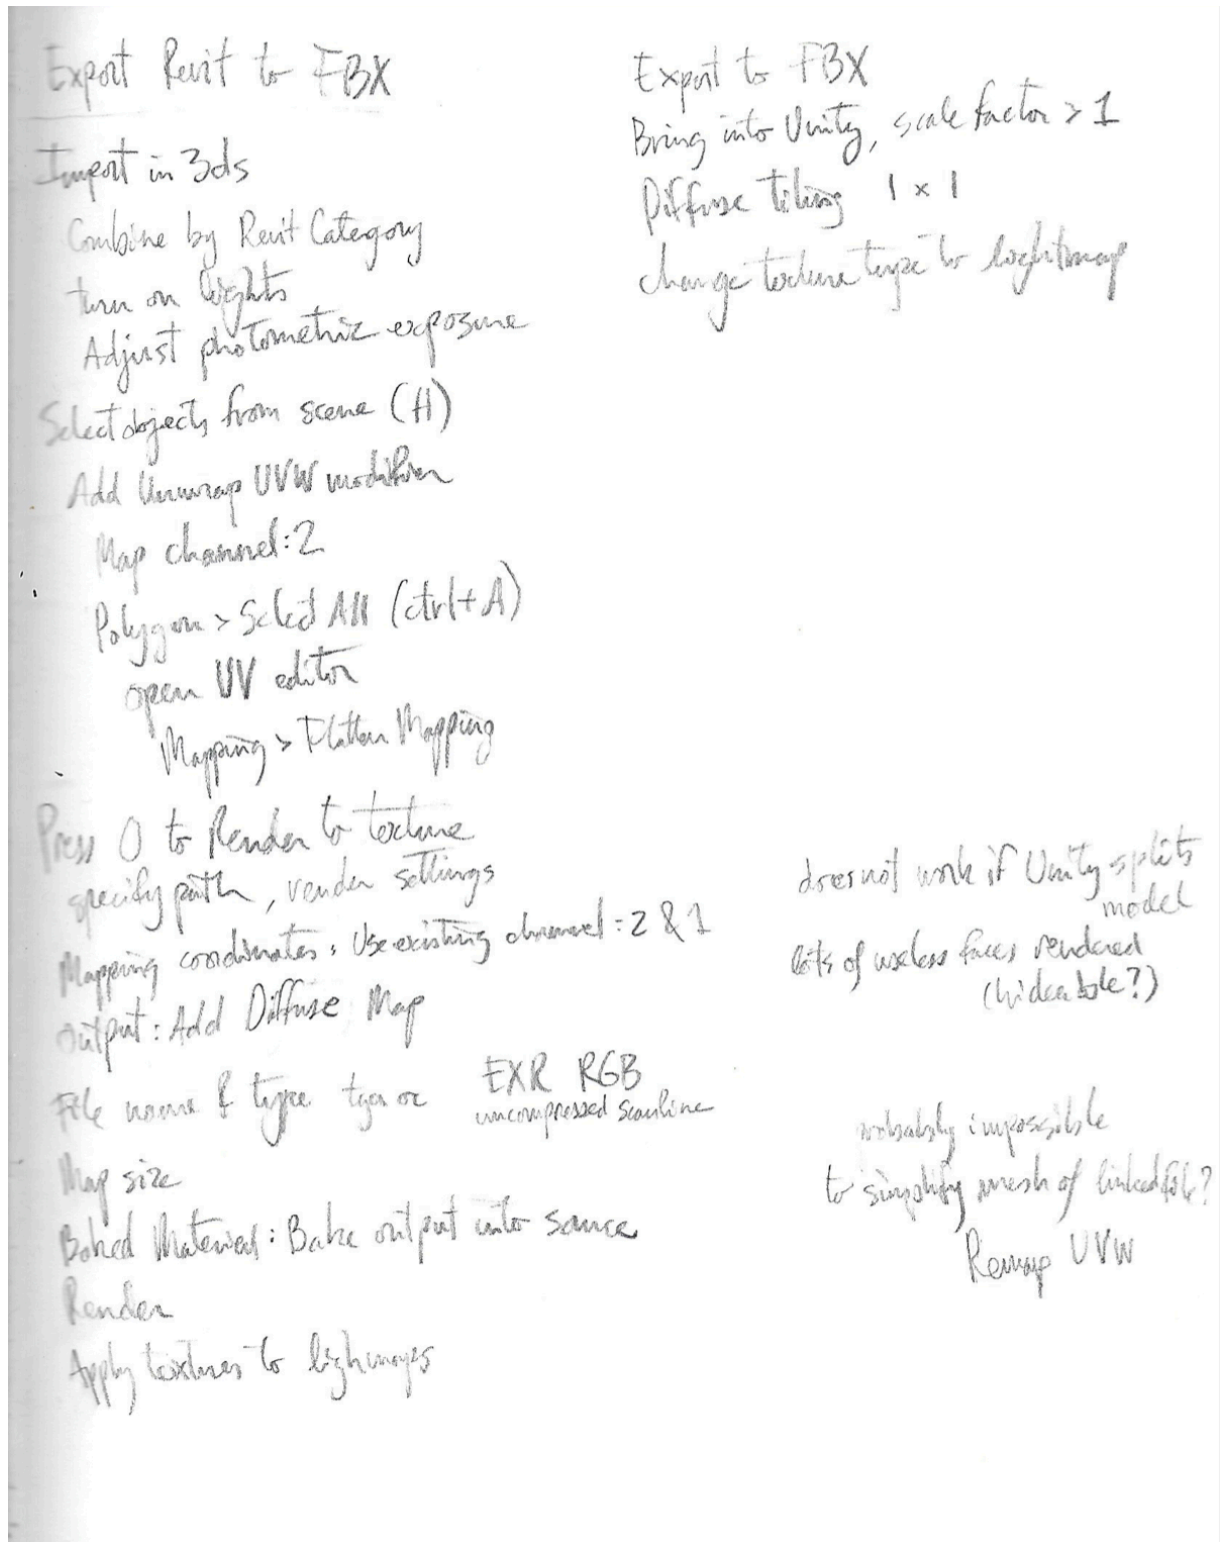 Export Revit to FBX
Import in 3ds
Combine by Revit Category
turn on lights
Adjust photometric exposure
Select objects from scene (H)
Add Unwrap UVW modifier
Map channel: 2
Polygon > Select All (ctrl+A)
open UV editor
Mapping > Flatten Mapping
Press 0 to Render to texture
specify path, render settings
Mapping coordinates: Use existing channel: 2 & 1
output: Add Diffuse Map
File name & type tga or EXR RGB
uncompressed scanline
Map size
Baked Material: Bake output into source
Render
Apply textures to lighmaps
Export to FBX
Bring into Unity, scale factor > 1
Diffuse tiling 1 x 1
change texture type to lightmap
does not work if Unity splits
model
lots of useless faces rendered
(hideable?)
probably impossible
to simplify mesh of linked file?
Remap UVW